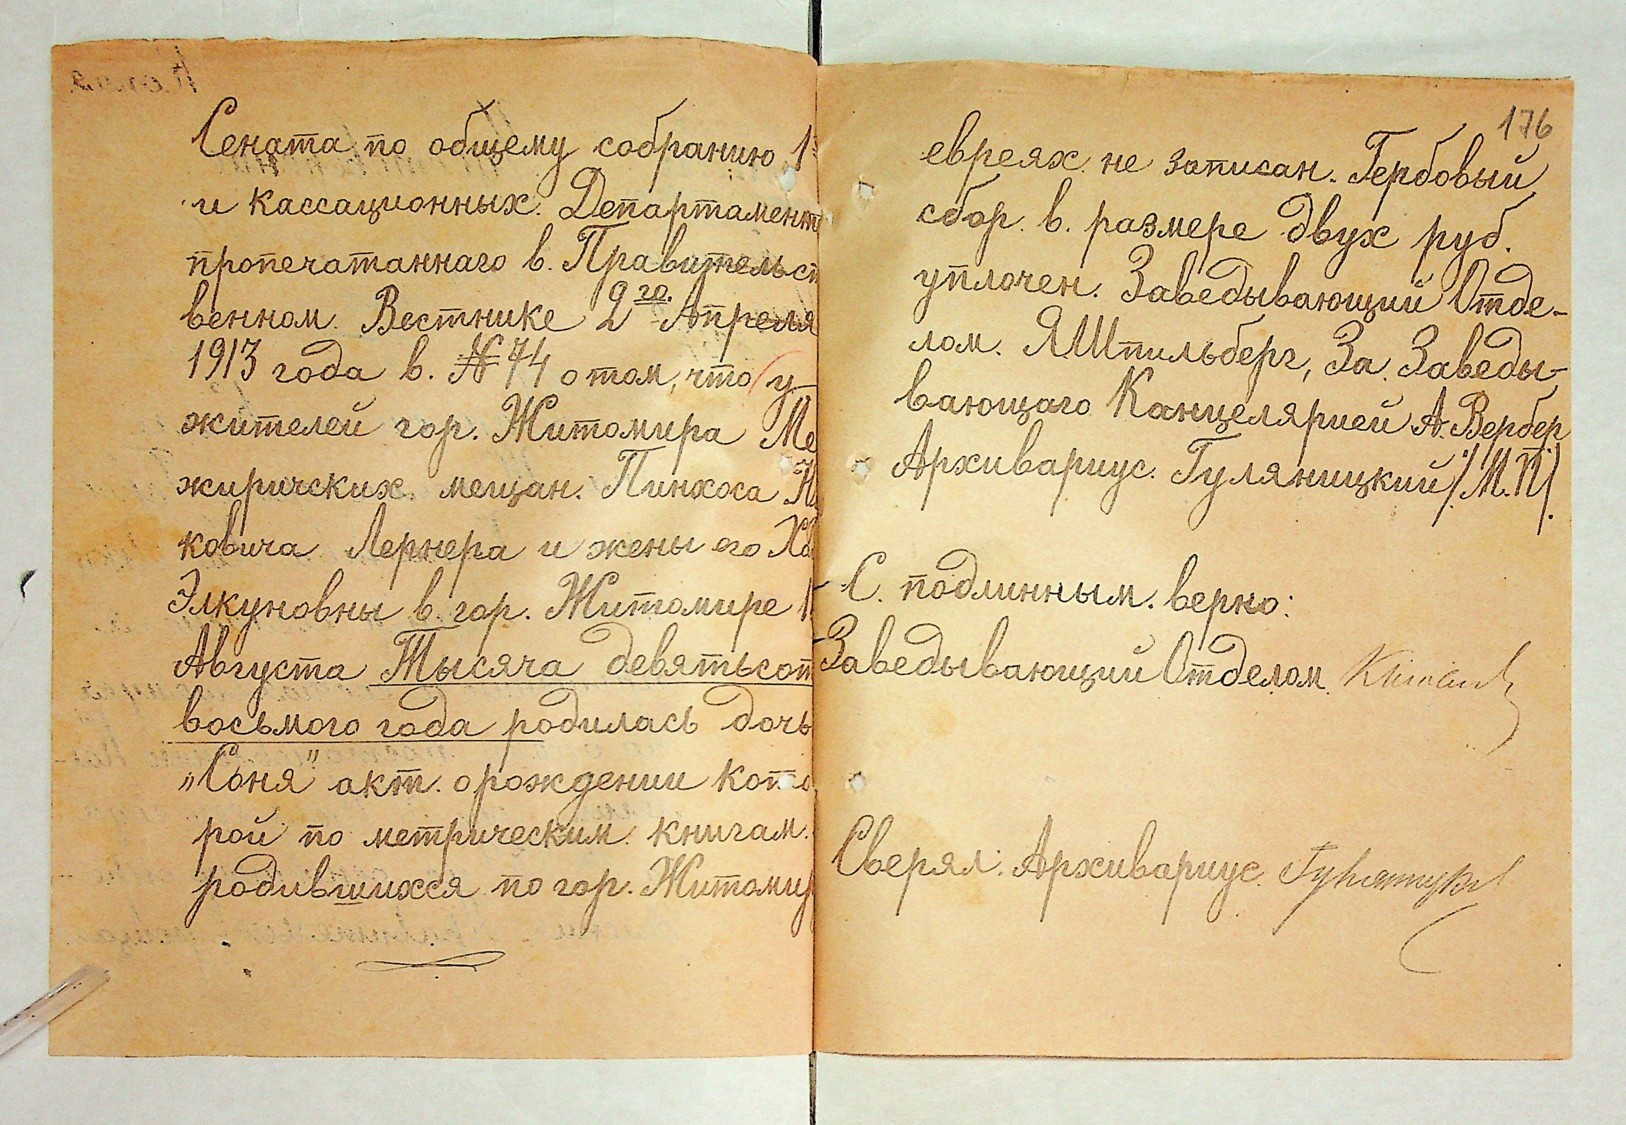 Сената по общему собранию 1
и кассационных. Департамент
пропечатаннаго в. Правительст
венном. Вестнике 2го. Апреля
1913 года в. № 74 о том, что у
жителей гор. Житомира Ме
жиричских. мещан. Пинхоса
ковича Лернера и жены его
Элкуновны в. гор. Житомире 1
Августа Тысяча девятьсот
восьмого года родилась дочь
„Соня" акт. о рождении кото
рой по метрическим. книгам.
родившихся по гор. Житомир
176
евреях. не записан. Гербовый
сбор. в. размере двух руб.
уплочен. Заведывающий Отде-
лом. Я Шпильберг, За. Заведы-
вающаго Канцелярией А. Вербер
Архивариус. Гуляницкий /М.П/.
С. подлинным. верно:
Заведывающий Отделом.
Сверял: Архивариус.